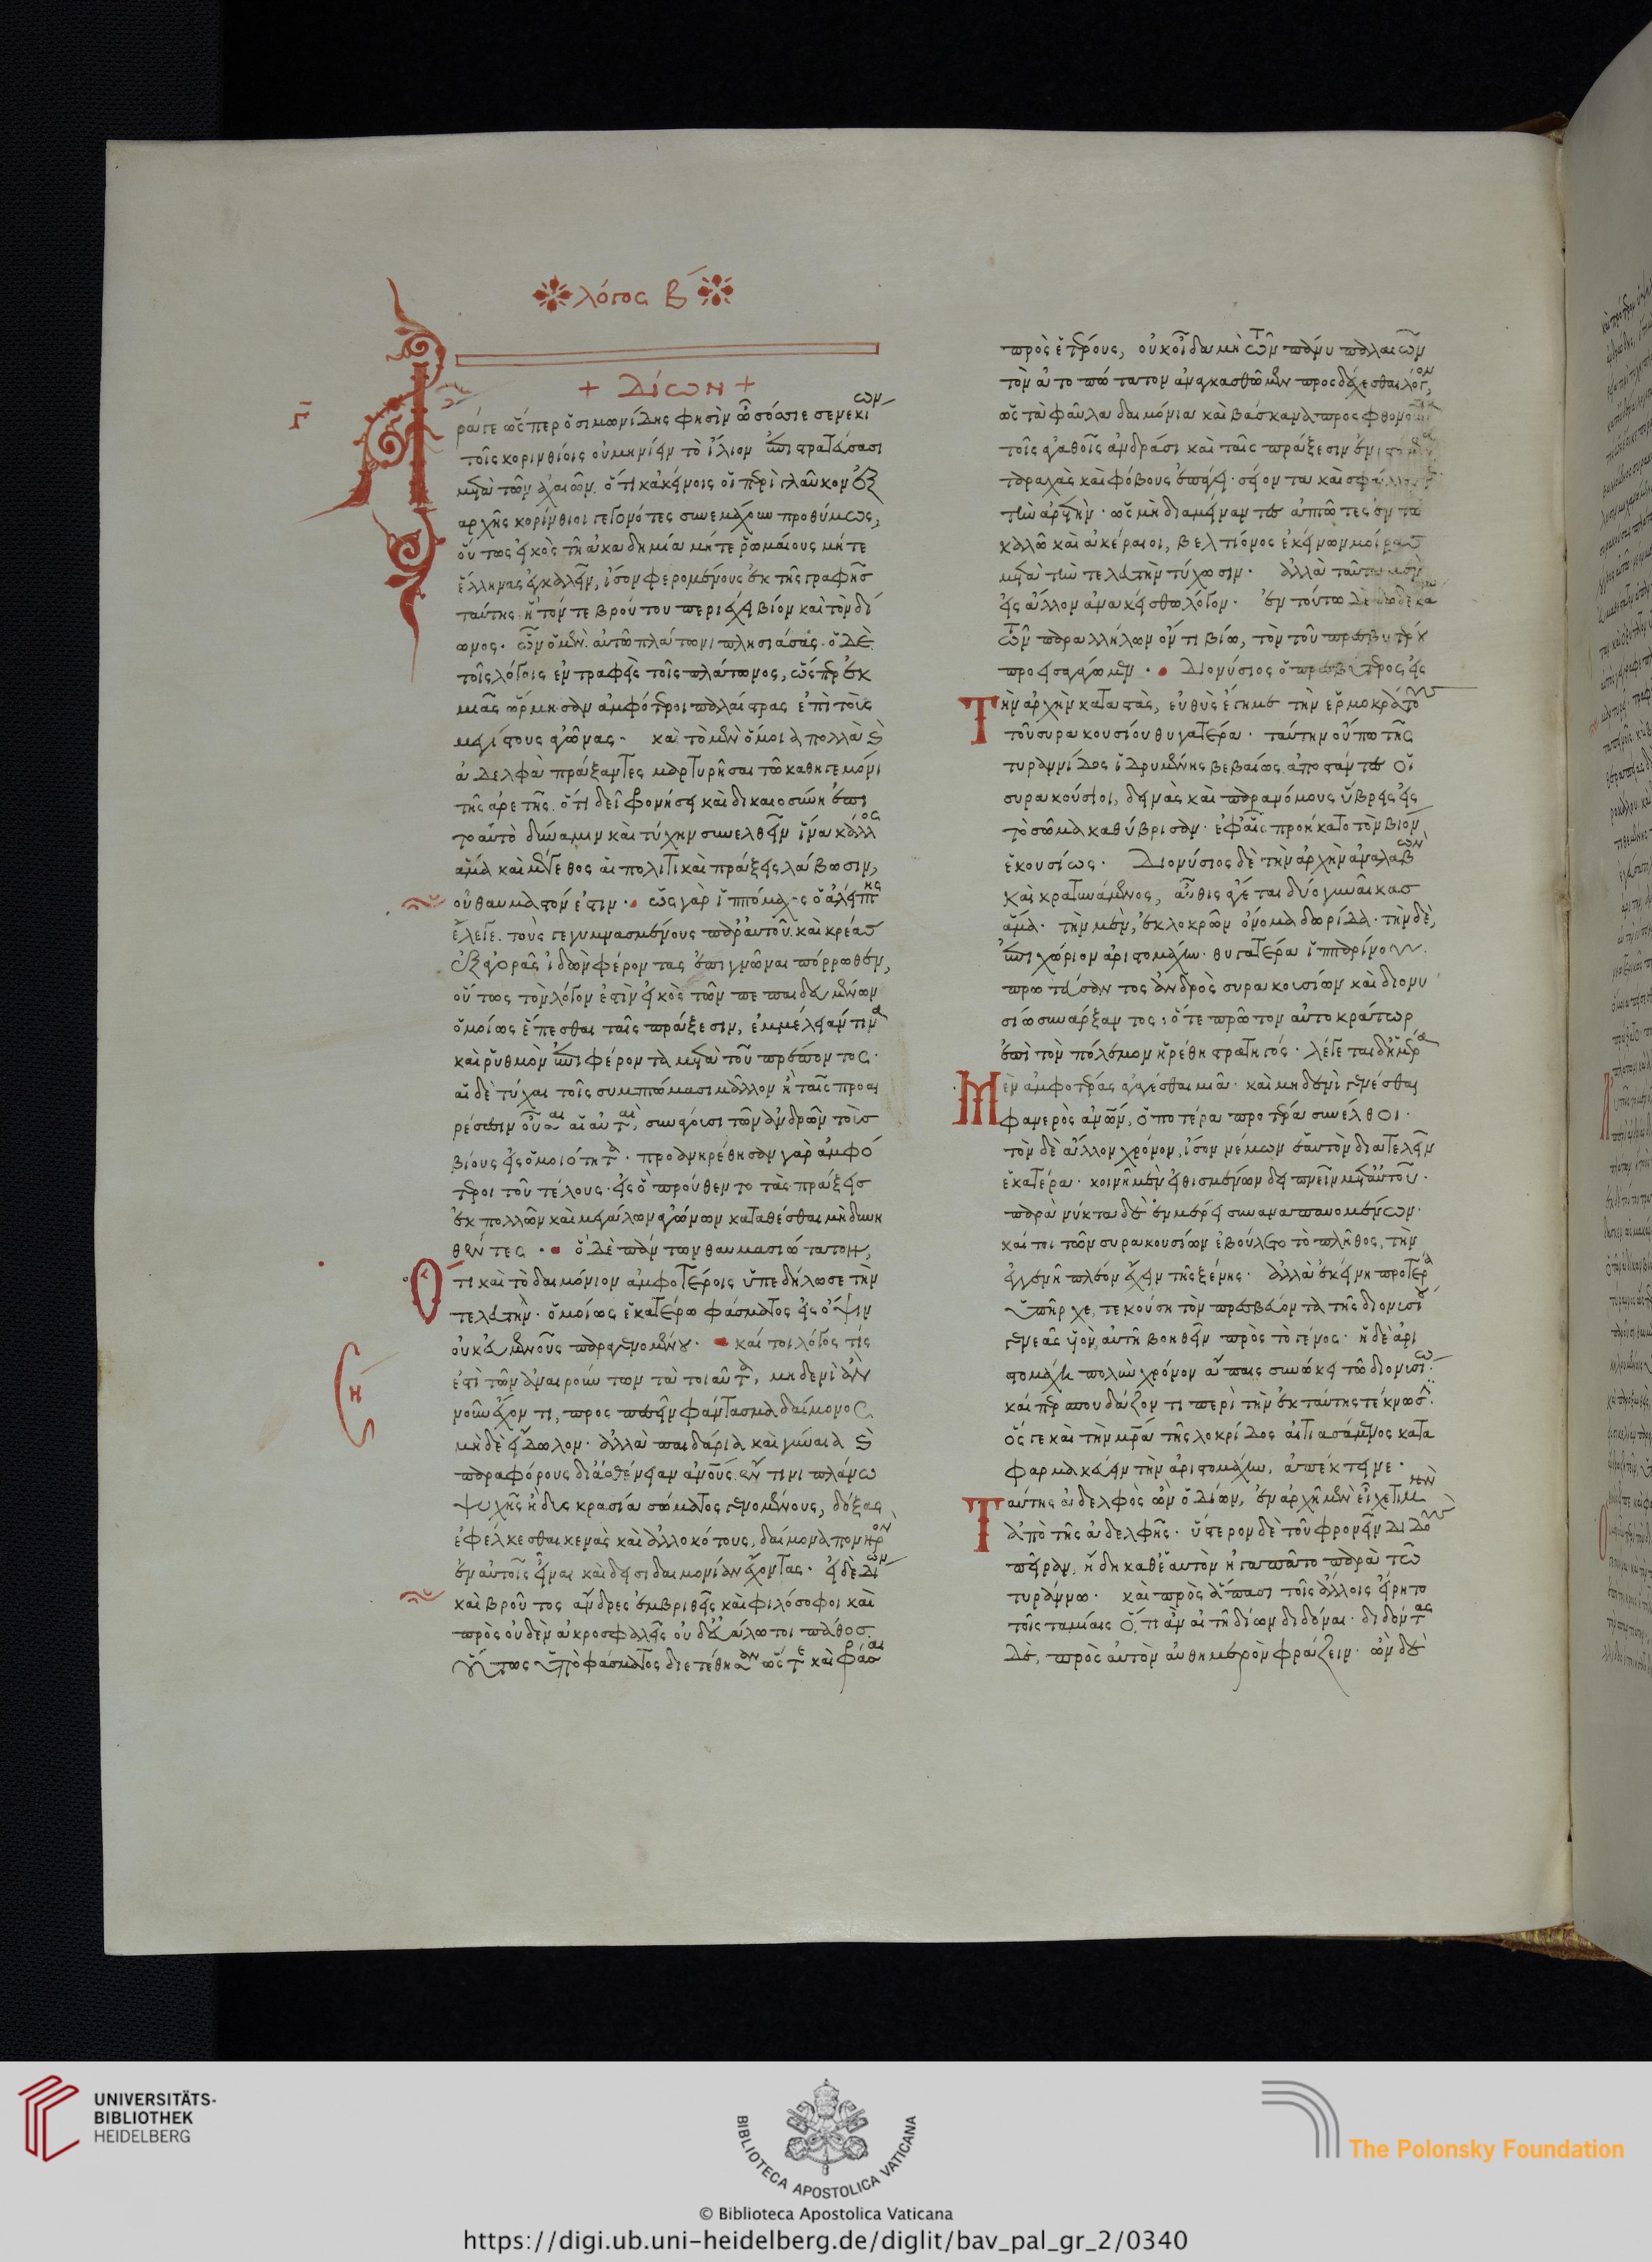 λόγος β
+ Δίων +
ἆρά γε ὥσπερ ὁ σιμωνίδης φησὶν ὦ σόσσιε σενεκίων
τοῖς κορινθίοις οὐ μηνίειν τὸ ἴλιον ἐπιστρατεύσασι
μετὰ τῶν ἀχαιῶν. ὅτι κἀκείνοις οἱ περὶ γλαῦκον ἐξ
ἀρχῆς κορίνθιοι γεγονότες συνεμάχουν προθύμως,
οὕτως εἰκὸς τῇ ἀκαδημίᾳ μήτε ῥωμαίους μήτε
ἕλληνας ἐγκαλεῖν, ἴσον φερομένους ἐκ τῆς γραφῆς
ταύτης ἣ τόν τε βρούτου περιέχει βίον καὶ τὸν δί
ωνος. ὧν ὁ μὲν αὐτῷ πλάτωνι πλησιάσας. ὁ δὲ
τοῖς λόγοις ἐντραφεὶς τοῖς πλάτωνος, ὥσπερ ἐκ
μιᾶς ὥρμησαν ἀμφότεροι παλαίστρας ἐπὶ τοὺς
μεγίστους ἀγῶνας. καὶ τὸ μὲν ὅμοια πολλὰ καὶ
ἀδελφὰ πράξαντες μαρτυρῆσαι τῷ καθηγεμόνι
τῆς ἀρετῆς. ὅτι δεῖ φρονήσει καὶ δικαιοσύνῃ ἐπι
τοαὐτὸ δύναμιν καὶ τύχην συνελθεῖν ἵνα κάλλος
ἅμα καὶ μέγεθος αἱ πολιτικαὶ πράξεις λάβωσιν,
οὐ θαυμαστόν ἐστιν. ὡς γὰρ ἱππόμαχος ὁ ἀλείπτης
ἔλεγε. τοὺς γεγυμνασμένους παρ' αὐτοῦ. καὶ κρέας
ἐξ ἀγορᾶς ἰδὼν φέροντας ἐπιγνῶναι πόρρωθεν,
οὕτως τὸν λόγον ἐστὶν εἰκὸς τῶν πεπαιδευμένων
ὁμοίως ἕπεσθαι ταῖς πράξεσιν, ἐμμέλειάν τινα
καὶ ῥυθμὸν ἐπιφέροντα μετὰ τοῦ πρέποντος.
αἱ δὲ τύχαι τοῖς συμπτώμασι μᾶλλον ἢ ταῖς προαι
ρέσεσιν οὖσαι αἱ αὐταί, συνάγουσι τῶν ἀνδρῶν τοὺς
βίους εἰς ὁμοιότητα. προανῃρέθησαν γὰρ ἀμφό
τεροι τοῦ τέλους. εἰς ὃ προύθεντο τὰς πράξεις
ἐκ πολλῶν καὶ μεγάλων ἀγώνων καταθέσθαι μὴ δυνη
θέντες. ὃ δὲ πάντων θαυμασιώτατον,
Ὅτι καὶ τὸ δαιμόνιον ἀμφοτέροις ὑπεδήλωσε τὴν
τελευτὴν. ὁμοίως ἑκατέρῳ φάσματος εἰς ὄψιν
οὐκ εὐμενοῦς παραγενομένου. καί τοι λόγος τίς
ἐστὶ τῶν ἀναιρούντων τὰ τοιαῦτα, μηδενὶ ἂν
νοῦν ἔχοντι, προσπεσεῖν φάντασμα δαίμονος
μηδὲ εἴδωλον. ἀλλὰ παιδάρια καὶ γύναια καὶ
παραφόρους δι' ἀσθένειαν ἀνθρώπους. ἔν τινι πλάνῳ
ψυχῆς ἢ δυσκρασίᾳ σώματος γενομένους, δόξας
ἐφέλκεσθαι κενὰς καὶ ἀλλοκότους, δαίμονα πονηρὸν
ἐν αὐτοῖς εἶναι καὶ δεισιδαιμονίαν ἔχοντας. εἰ δὲ δίων
καὶ βροῦτος ἄνδρες ἐμβριθεῖς καὶ φιλόσοφοι καὶ
πρὸς οὐδὲν ἀκροσφαλεῖς οὐδ' εὐάλωτοι πάθος.
οὕτως ὑπὸ φάσματος διετέθησαν ὥστε καὶ φράσαι
πρὸς ἑτέρους, οὐκ οἶδα μὴ τῶν πάνυ παλαιῶν
τὸν ἀτοπώτατον ἀναγκασθῶμεν προσδέχεσθαι λόγον,
ὡς τὰ φαῦλα δαιμόνια καὶ βάσκανα προσφθονοῦντα
τοῖς ἀγαθοῖς ἀνδράσι καὶ ταῖς πράξεσιν ἐνιστάμενα
ταραχὰς καὶ φόβους ἐπάγει. σείοντα καὶ σφάλλοντα
τὴν ἀρετὴν. ὡς μὴ διαμείναντες ἀπτῶτες ἐν τῷ
καλῷ καὶ ἀκέραιοι, βελτίονος ἐκείνων μοίρας
μετὰ τὴν τελευτὴν τύχωσιν. ἀλλὰ ταῦτα μὲν
εἰς ἄλλον ἀνακείσθω λόγον. ἐν τούτῳ δὲ δωδεκάτῳ
τῶν παραλλήλων ὄντι βίῳ, τὸν τοῦ πρεσβυτέρου
προεισαγάγωμεν. Διονύσιος ὁ πρεσβύτερος εἰς
Τὴν ἀρχὴν καταστὰς, εὐθὺς ἔγημε τὴν ἑρμοκράτους
τοῦ συρακουσίου θυγατέρα. ταύτην οὔπω τῆς
τυραννίδος ἱδρυμένης βεβαίως ἀποστάντες οἱ
συρακούσιοι, δεινὰς καὶ παρανόμους ὕβρεις εἰς
τὸ σῶμα καθύβρισαν. ἐφ' αἷς προήκατο τὸν βίον
ἑκουσίως. Διονύσιος δὲ τὴν ἀρχὴν ἀναλαβὼν
καὶ κρατυνάμενος, αὖθις ἄγεται δύο γυναῖκας
ἅμα. τὴν μὲν, ἐκ λοκρῶν ὄνομα δωρίδα. τὴν δὲ,
ἐπιχώριον ἀριστομάχην. θυγατέρα ἱππαρίνου.
πρωτεύσαντος ἀνδρὸς συρακουσίων καὶ διονυ
σίῳ συνάρξαντος, ὅτε πρῶτον αὐτοκράτωρ
ἐπὶ τὸν πόλεμον ᾑρέθη στρατηγός. λέγεται δὴ ἡμέρᾳ
Μὲν ἀμφοτέρας ἀγαγέσθαι μιᾷ. καὶ μηδενὶ γενέσθαι
φανερὸς ἀνθρώπων, ὁποτέρᾳ προτέρᾳ συνέλθοι.
τὸν δὲ ἄλλον χρόνον, ἴσον νέμων ἑαυτὸν διατελεῖν
ἑκατέρᾳ. κοινῇ μὲν εἰθισμένων δειπνεῖν μετ' αὐτοῦ.
παρὰ νύκτα δὲ ἐν μέρει συναναπαυομένων.
καίτοι τῶν συρακουσίων ἐβούλετο τὸ πλῆθος, τὴν
ἐγγενῆ πλέον ἔχειν τῆς ξένης. ἀλλὰ ἐκείνῃ πρότερα
ὑπῆρχε, τεκούσῃ τὸν πρεσβεύοντα τῆς διονυσίου
γενεᾶς υἱὸν, αὐτῇ βοηθεῖν πρὸς τὸ γένος. ἡ δὲ ἀρι
στομάχη πολὺν χρόνον ἄπαις συνῴκει τῷ διονυσίῳ.
καίπερ σπουδάζοντι περὶ τὴν ἐκ ταύτης τέκνωσιν.
ὅς γε καὶ τὴν μητέρα τῆς λοκρίδος αἰτιασάμενος κατα
φαρμακεύειν τὴν ἀριστομάχην, ἀπέκτεινε.
Ταύτης ἀδελφὸς ὢν ὁ δίων, ἐν ἀρχῇ μὲν εἶχε τιμὴν
ἀπὸ τῆς ἀδελφῆς. ὕστερον δὲ τοῦ φρονεῖν διδοὺς
πεῖραν, ἤδη καθ' ἑαυτὸν ἠγαπᾶτο παρὰ τῷ
τυράννῳ. καὶ πρὸς ἅπασι τοῖς ἄλλοις εἴρητο
τοῖς ταμίαις ὅ,τι ἂν αἰτῇ δίων διδόναι. διδόντας
δὲ, πρὸς αὐτὸν αὐθημερὸν φράζειν. ὢν δὲ
UNIVERSITÄTS-
BIBLIOTHEK
HEIDELBERG
BIBLIOTECA APOSTOLICA VATICANA
The Polonsky Foundation
© Biblioteca Apostolica Vaticana
https://digi.ub.uni-heidelberg.de/diglit/bav_pal_gr_2/0340